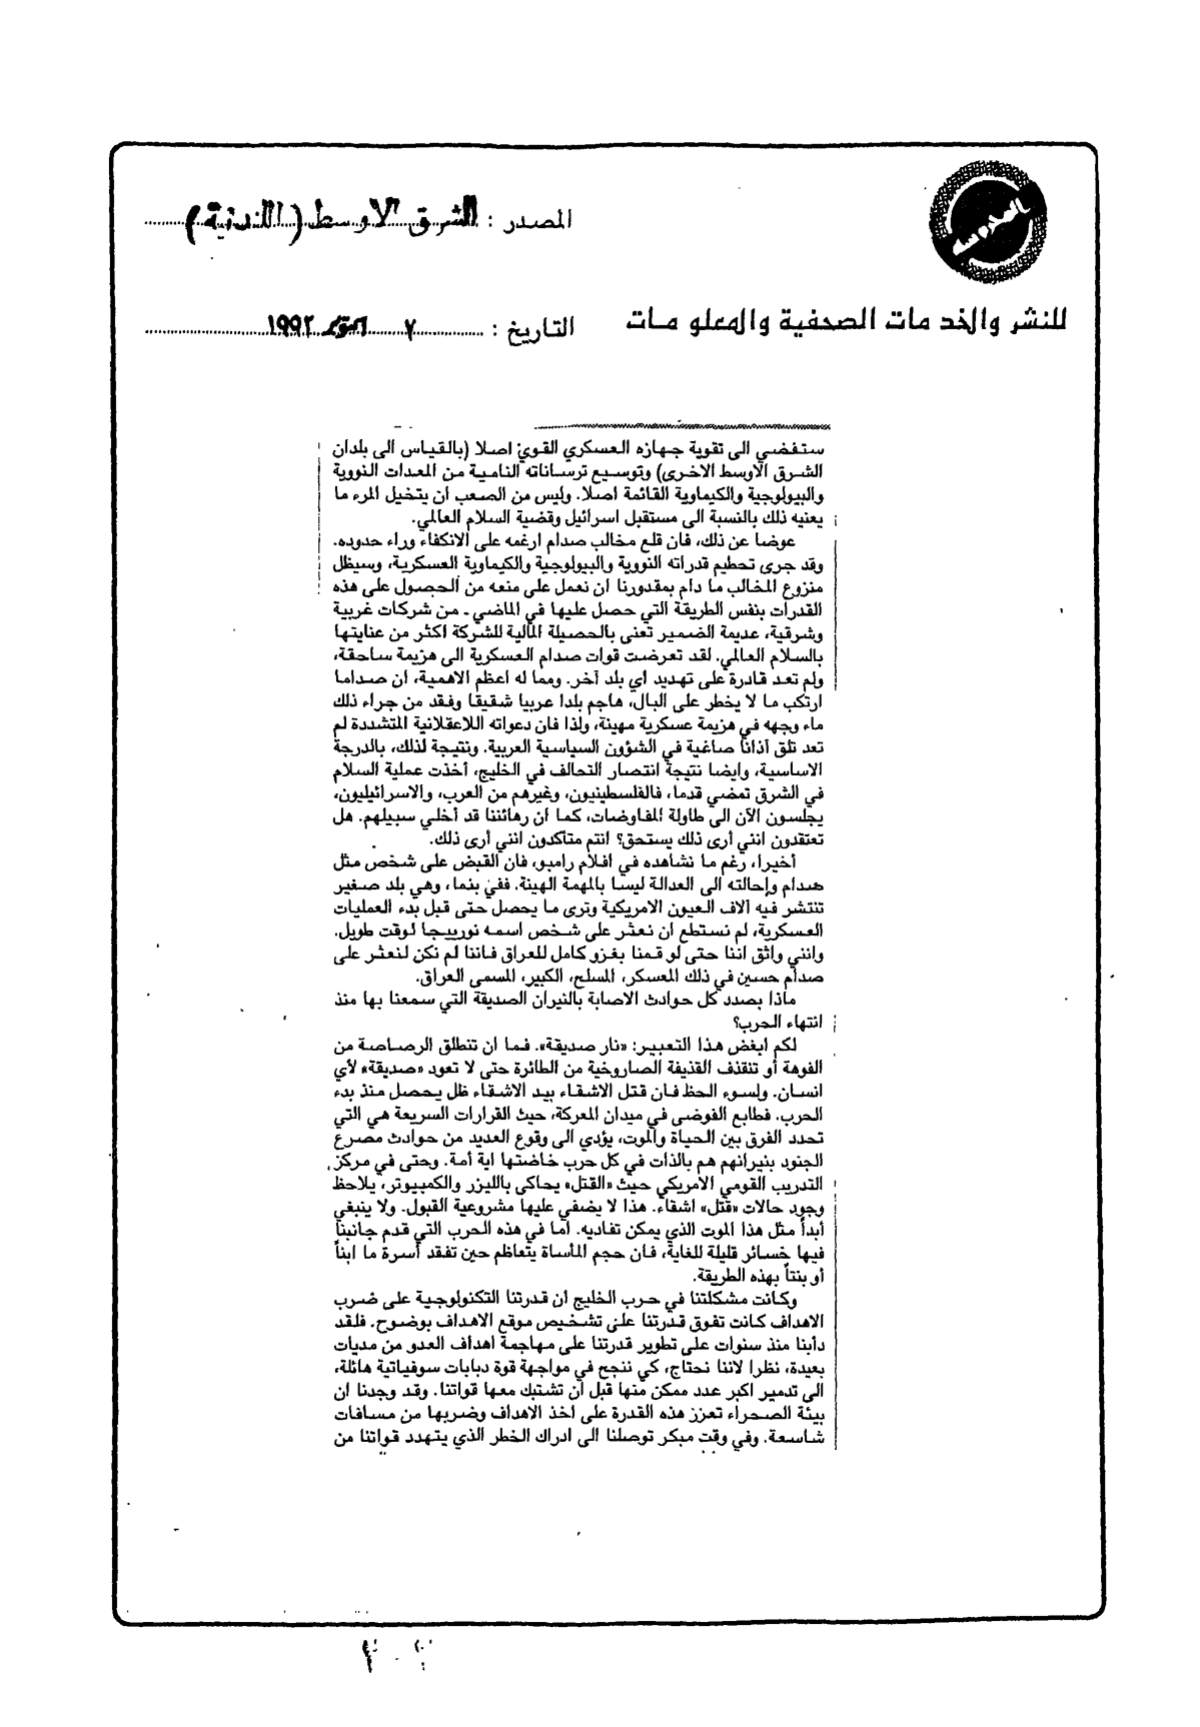 المصدر : الشرق الاوسط (اللندنية)
للنشر والخدمات الصحفية والمعلومات
التاريخ : ٧ اكتوبر ١٩٩٢
ستفضي الى تقوية جهازه العسكري القوي اصلا (بالقياس الى بلدان
الشرق الاوسط الاخرى) وتوسيع ترساناته النامية من المعدات النووية
والبيولوجية والكيماوية القائمة اصلا. وليس من الصعب ان يتخيل المرء ما
يعنيه ذلك بالنسبة الى مستقبل اسرائيل وقضية السلام العالمي.
عوضا عن ذلك، فان قلع مخالب صدام ارغمه على الانكفاء وراء حدوده.
وقد جرى تحطيم قدراته النووية والبيولوجية والكيماوية العسكرية، وسيظل
منزوع المخالب ما دام بمقدورنا ان نعمل على منعه من الحصول على هذه
القدرات بنفس الطريقة التي حصل عليها في الماضي - من شركات غربية
وشرقية، عديمة الضمير تعنى بالحصيلة المالية للشركة اكثر من عنايتها
بالسلام العالمي. لقد تعرضت قوات صدام العسكرية الى هزيمة ساحقة،
ولم تعد قادرة على تهديد اي بلد آخر. ومما له اعظم الاهمية، ان صداما
ارتكب ما لا يخطر على البال، هاجم بلدا عربيا شقيقا وفقد من جراء ذلك
ماء وجهه في هزيمة عسكرية مهينة، ولذا فان دعواته اللاعقلانية المتشددة لم
تعد تلق آذاناً صاغية في الشؤون السياسية العربية. ونتيجة لذلك، بالدرجة
الاساسية، وايضا نتيجة انتصار التحالف في الخليج، أخذت عملية السلام
في الشرق تمضي قدما، فالفلسطينيون، وغيرهم من العرب، والاسرائيليون،
يجلسون الآن الى طاولة المفاوضات، كما ان رهائننا قد أخلي سبيلهم. هل
تعتقدون انني أرى ذلك يستحق؟ انتم متاكدون انني أرى ذلك.
أخيرا، رغم ما نشاهده في افلام رامبو، فان القبض على شخص مثل
صدام وإحالته الى العدالة ليسا بالمهمة الهينة. ففي بنما، وهي بلد صغير
تنتشر فيه آلاف العيون الامريكية وترى ما يحصل حتى قبل بدء العمليات
العسكرية، لم نستطع ان نعثر على شخص اسمه نورييجا لوقت طويل.
وانني واثق اننا حتى لو قمنا بغزو كامل للعراق فاننا لم نكن لنعثر على
صدام حسين في ذلك المعسكر، المسلح، الكبير، المسمى العراق.
ماذا بصدد كل حوادث الاصابة بالنيران الصديقة التي سمعنا بها منذ
انتهاء الحرب؟
لكم ابغض هذا التعبير: «نار صديقة». فما ان تنطلق الرصاصة من
الفوهة أو تنقذف القذيفة الصاروخية من الطائرة حتى لا تعود «صديقة» لأي
انسان. ولسوء الحظ فان قتل الاشقاء بيد الاشقاء ظل يحصل منذ بدء
الحرب. فطابع الفوضى في ميدان المعركة، حيث القرارات السريعة هي التي
تحدد الفرق بين الحياة والموت، يؤدي الى وقوع العديد من حوادث مصرع
الجنود بنيرانهم هم بالذات في كل حرب خاضتها اية أمة. وحتى في مركز
التدريب القومي الامريكي حيث «القتل» يحاكى بالليزر والكمبيوتر، يلاحظ
وجود حالات «قتل» اشقاء. هذا لا يضفي عليها مشروعية القبول. ولا ينبغي
أبداً مثل هذا الموت الذي يمكن تفاديه. اما في هذه الحرب التي قدم جانبنا
فيها خسائر قليلة للغاية، فان حجم المأساة يتعاظم حين تفقد أسرة ما ابناً
أو بنتاً بهذه الطريقة.
وكانت مشكلتنا في حرب الخليج ان قدرتنا التكنولوجية على ضرب
الاهداف كانت تفوق قدرتنا على تشخيص موقع الاهداف بوضوح. فلقد
دأبنا منذ سنوات على تطوير قدرتنا على مهاجمة اهداف العدو من مديات
بعيدة، نظرا لاننا نحتاج، كي ننجح في مواجهة قوة دبابات سوفياتية هائلة،
الى تدمير اكبر عدد ممكن منها قبل ان تشتبك معها قواتنا. وقد وجدنا ان
بيئة الصحراء تعزز هذه القدرة على اخذ الاهداف وضربها من مسافات
شاسعة. وفي وقت مبكر توصلنا الى ادراك الخطر الذي يتهدد قواتنا من